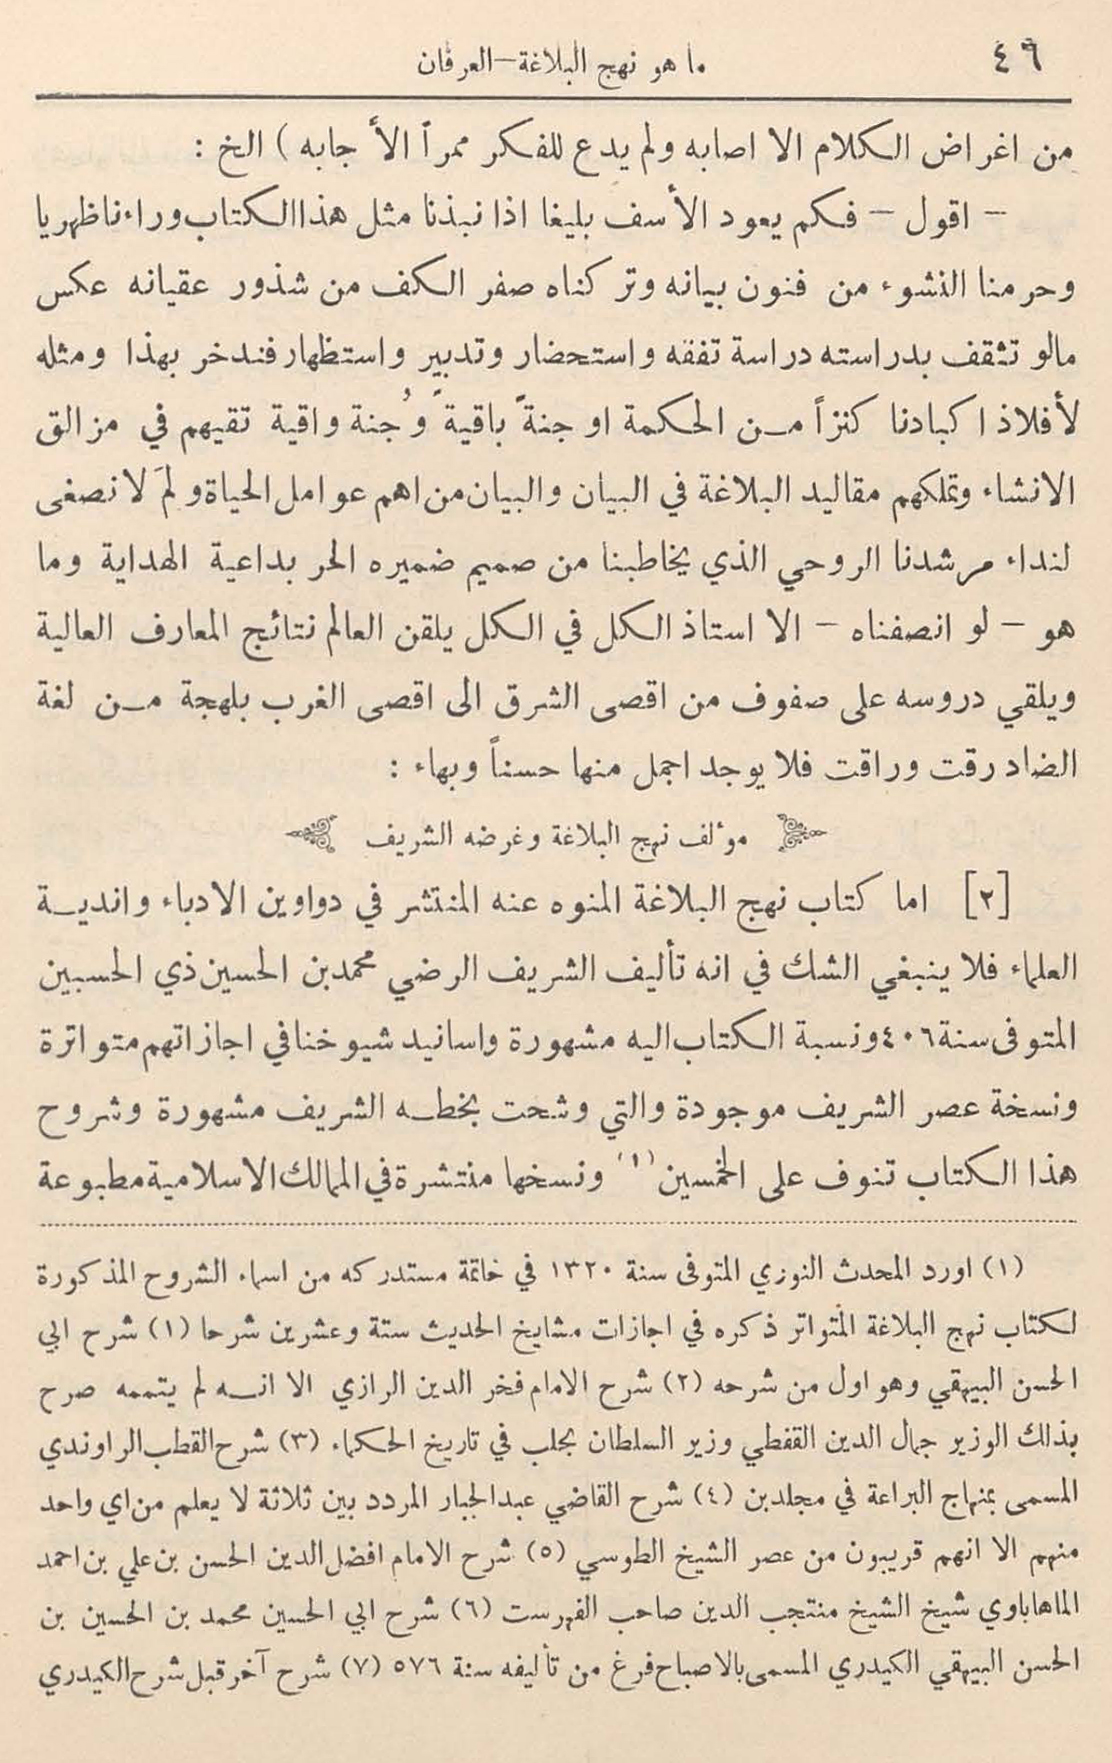 ٤٦
ما هو نهج البلاغة–العرفان
من اغراض الكلام الا اصابه ولم يدع للفكر ممراً الا جابه ) الخ :
– اقول – فكم يعود الأسف بليغا اذا نبذنا مثل هذا الكتاب وراءنا ظهريا
وحرمنا النشوء من فنون بيانه وتركناه صفر الكف من شذور عقيانه عكس
مالو تثقف بدراسته دراسة تفقه واستحضار وتدبير واستظهار فندخر بهذا ومثله
لأفلاذ اكبادنا كنزاً من الحكمة او جنةً باقيةً وجُنة واقية تقيهم في مزالق
الانشاء وتملكهم مقاليد البلاغة في البيان والبيان من اهم عوامل الحياة ولمَ لا نصغى
لنداء مرشدنا الروحي الذي يخاطبنا من صميم ضميره الحر بداعية الهداية وما
هو – لو انصفناه – الا استاذ الكل في الكل يلقن العالم نتائج المعارف العالية
ويلقي دروسه على صفوف من اقصى الشرق الى اقصى الغرب بلهجة من لغة
الضاد رقت وراقت فلا يوجد اجمل منها حسناً وبهاء :
مؤلف نهج البلاغة وغرضه الشريف
[٢] اما كتاب نهج البلاغة المنوه عنه المنتشر في دواوين الادباء واندية
العلماء فلا ينبغي الشك في انه تأليف الشريف الرضي محمد بن الحسين ذي الحسبين
المتوفى سنة ٤٠٦ ونسبة الكتاب اليه مشهورة واسانيد شيوخنا في اجازاتهم متواترة
ونسخة عصر الشريف موجودة والتي وشحت بخطه الشريف مشهورة وشروح
هذا الكتاب تنوف على الخمسين (١) ونسخها منتشرة في المالك الاسلامية مطبوعة
(١) اورد المحدث النوزي المتوفى سنة ١٣٢٠ في خاتمة مستدركه من اسماء الشروح المذكورة
لكتاب نهج البلاغة المتواتر ذكره في اجازات مشايخ الحديث ستة وعشرين شرحا (١) شرح ابي
الحسن البيهقي وهو اول من شرحه (٢) شرح الامام فخر الدين الرازي الا انه لم يتممه صرح
بذلك الوزير جمال الدين القفطي وزير السلطان بجلب في تاريخ الحكماء (٣) شرح القطب الراوندي
المسمى بمنهاج البراعة في مجلدبن (٤) شرح القاضي عبد الجبار المردد بين ثلاثة لا يعلم من اي واحد
منهم الا انهم قريبون من عصر الشيخ الطوسي (٥) شرح الامام افضل الدين الحسن بن علي بن احمد
الماهاباوي شيخ الشيخ منتجب الدين صاحب الفهرست (٦) شرح ابي الحسين محمد بن الحسين بن
الحسن البيهقي الكيدري المسمى بالاصباح فرغ من تأليفه سنة ٥٧٦ (٧) شرح آخر قبل شرح الكيدري